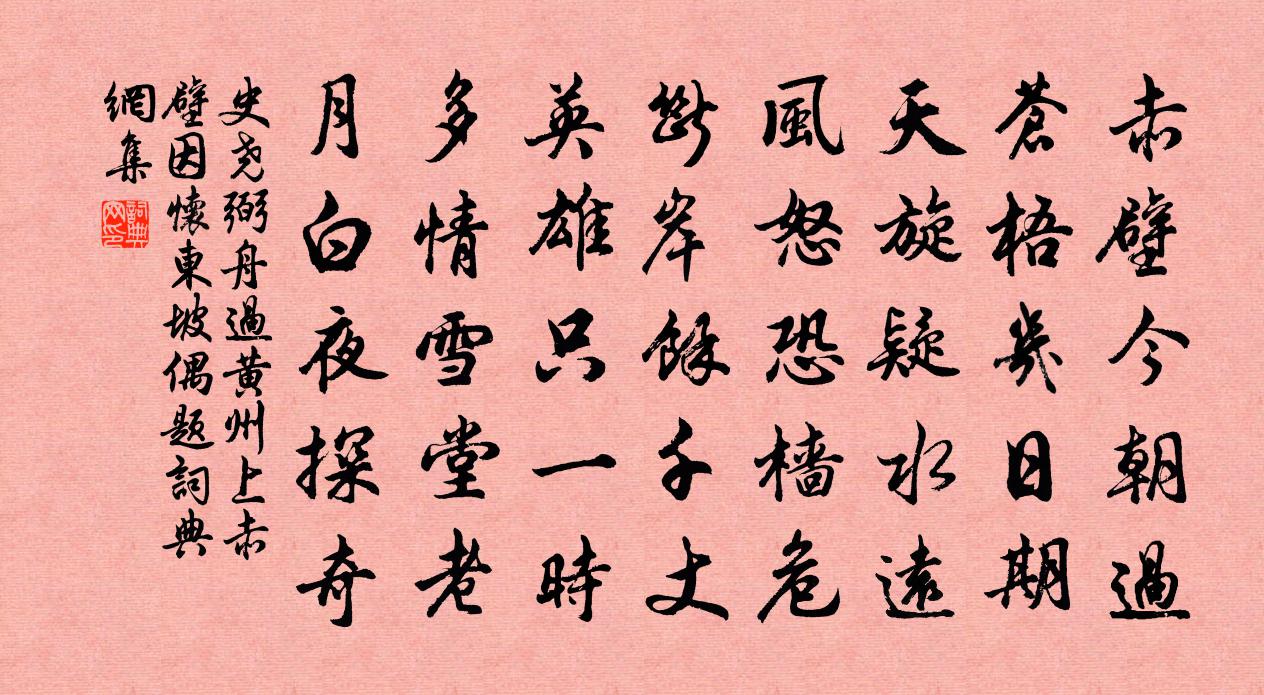 赤壁今朝過
蒼梧幾日期
天旋疑水遠
風怒恐檣危
斷岸餘千丈
英雄只一時
多情雪堂老
月白夜探奇
史尧弼舟過黄州上赤
壁因懷東坡偶题詞典
網集
詞典網印